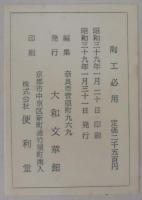 陶工必用 定価二千五百円
昭和三十九年一月二十日 印刷
昭和三十九年一月三十一日 発行
奈良市菅原町九六九
編集
発行 大和文華館
京都市中京区新町通竹屋町南入
印刷 株式会社 便利堂